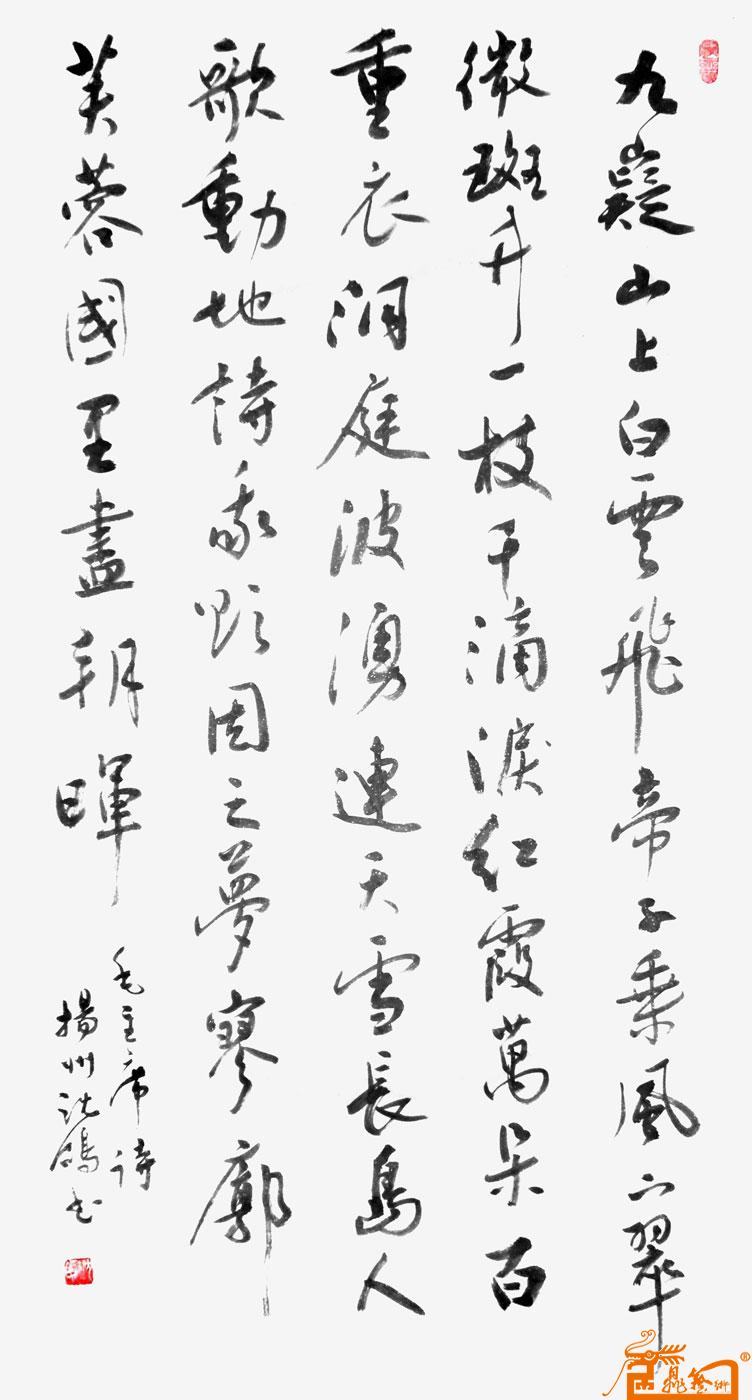 九嶷山上白雲飛帝子乘風下翠
微斑竹一枝千滴淚紅霞萬朵百
重衣洞庭波湧連天雪長島人
歌動地詩我欲因之夢寥廓
芙蓉國里盡朝暉
毛主席詩
揚州沈鴿书